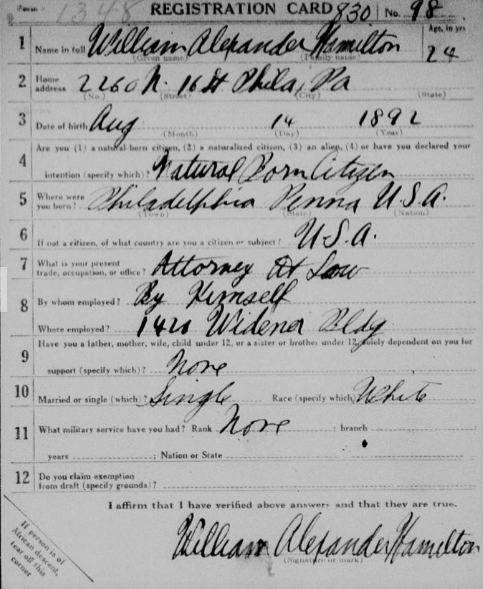 Form 1348 REGISTRATION CARD 830 No. 98
1 Name in full William Alexander Hamilton Age, in yrs
(Given name) (Family name) 24
2 Home address 2260 N. 16 St Phila, Pa
(No.) (Street) (City) (State)
3 Date of birth Aug 14 1892
(Month) (Day) (Year)
Are you (1) a natural-born citizen, (2) a naturalized citizen, (3) an alien, (4) or have you declared your
4 intention (specify which)? Natural Born Citizen
5 Where were you born? Philadelphia Penna U.S.A.
(Town) (State) (Nation)
6 If not a citizen, of what country are you a citizen or subject? U.S.A.
7 What is your present trade, occupation, or office? Attorney At Law
8 By whom employed? By Himself
Where employed? 1420 Widener Bldg
Have you a father, mother, wife, child under 12, or a sister or brother under 12, solely dependent on you for
9 support (specify which)? None
10 Married or single (which)? Single Race (specify which) White
11 What military service have you had? Rank None ; branch
years ; Nation or State
12 Do you claim exemption from draft (specify grounds)?
I affirm that I have verified above answers and that they are true.
William Alexander Hamilton
(Signature or mark)
If person is of
African descent,
tear off this
corner